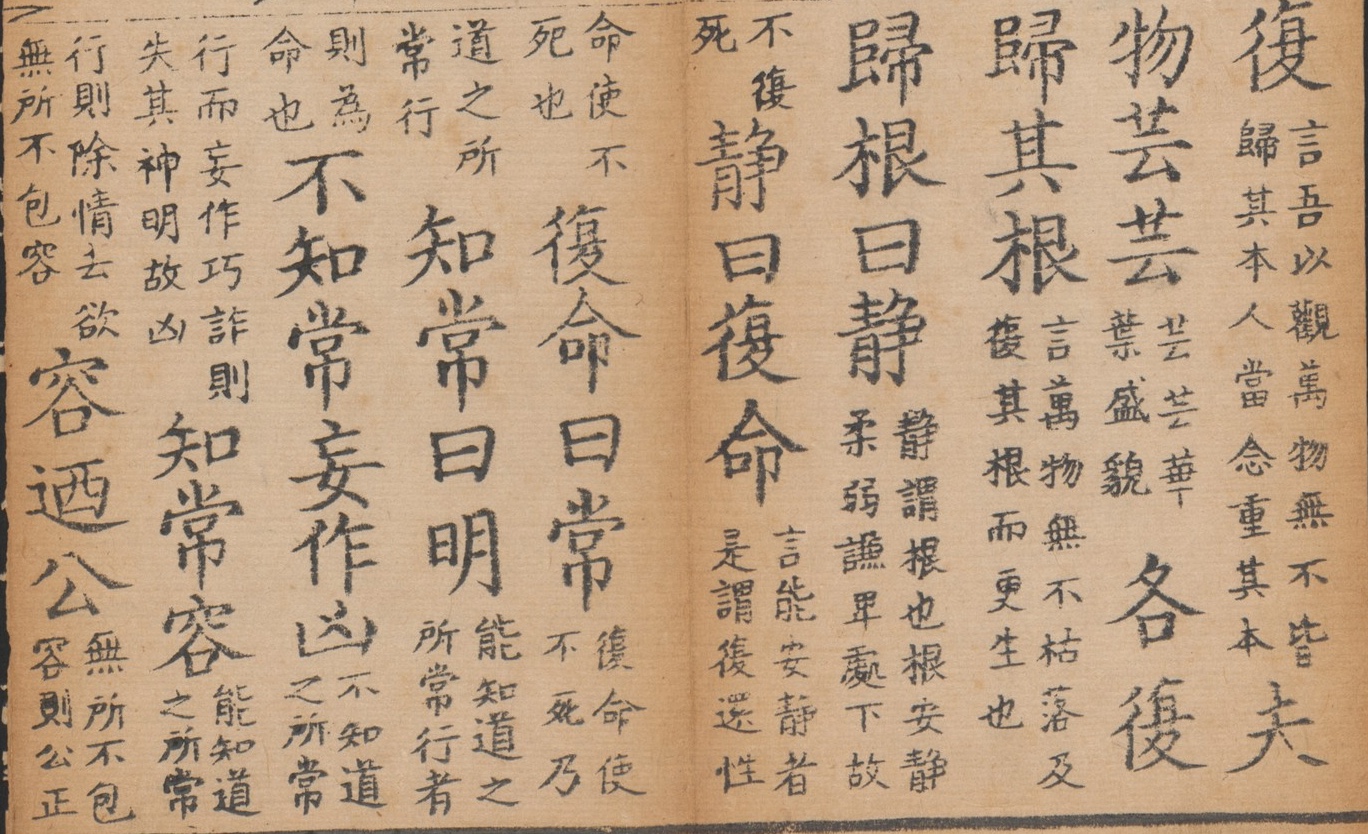 復
言吾以觀萬物無不皆
歸其本人當念重其本
夫
物芸芸
芸芸華
葉盛貌
各復
歸其根
言萬物無不枯落及
復其根而更生也
歸根曰静
静謂根也根安静
柔弱謙卑處下故
不復
死
静曰復命
言能安静者
是謂復還性
命使不
死也
復命曰常
復命使
不死乃
道之所
常行
知常曰明
能知道之
所常行者
則為
命也
不知常妄作凶
不知道
之所常
行而妄作巧詐則
失其神明故凶
知常容
能知道
之所常
行則除情去欲
無所不包容
容迺公
無所不包
容則公正